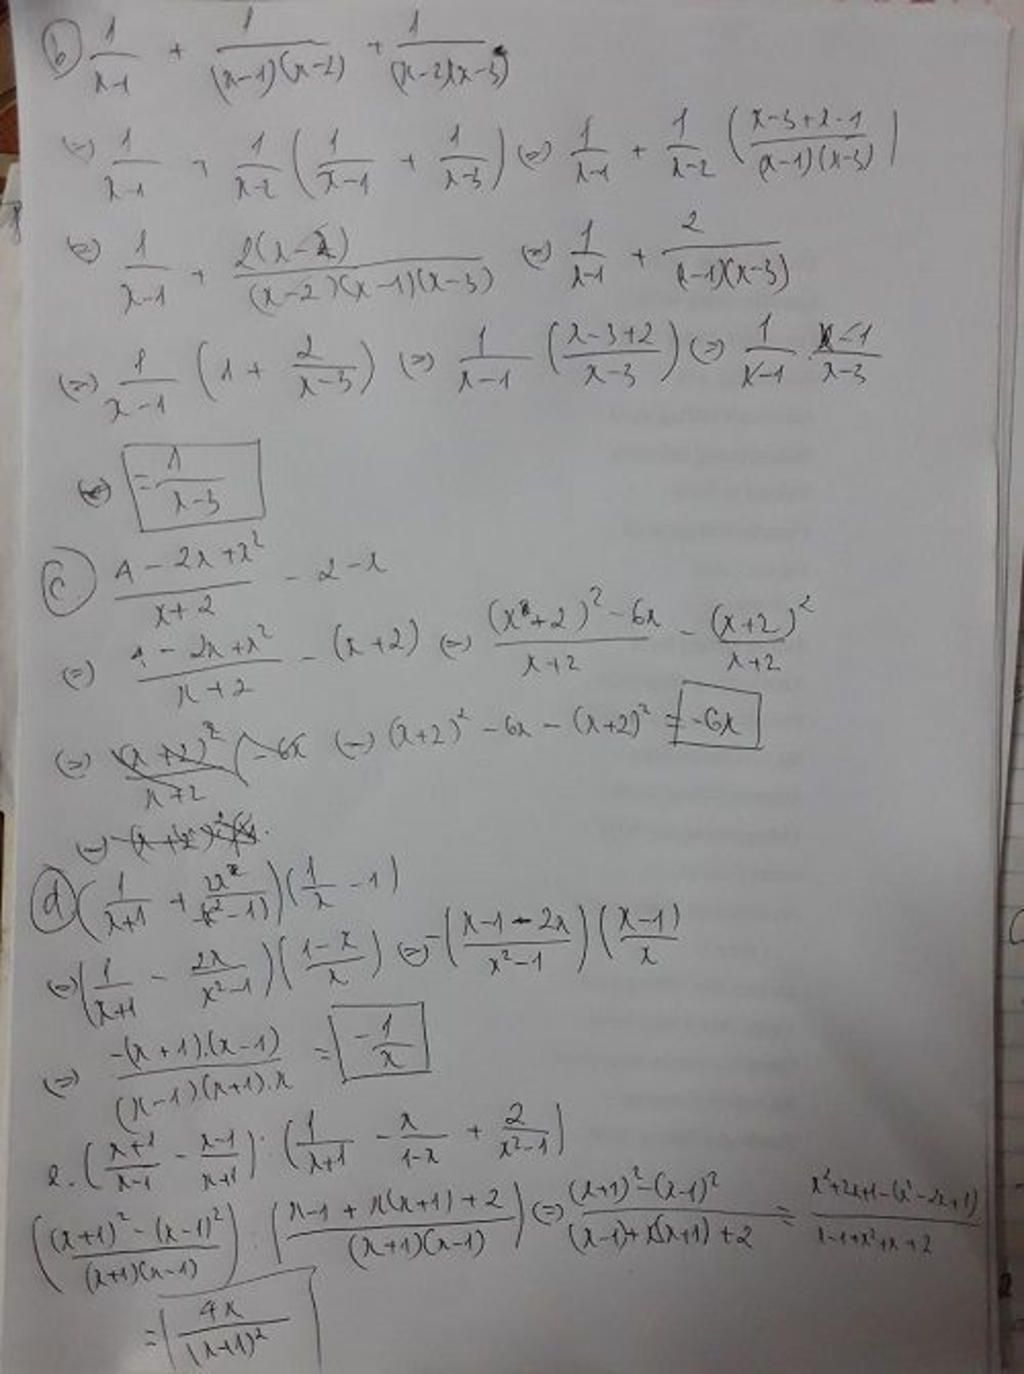 b) 1/(x-1) + 1/((x-1)(x-2)) + 1/((x-2)(x-3))
(=) 1/(x-1) + 1/(x-2) (1/(x-1) + 1/(x-3)) (=) 1/(x-1) + 1/(x-2) ((x-3+x-1)/((x-1)(x-3)))
(=) 1/(x-1) + 2(x-2)/((x-2)(x-1)(x-3)) (=) 1/(x-1) + 2/((x-1)(x-3))
(=) 1/(x-1) (1 + 2/(x-3)) (=) 1/(x-1) ((x-3+2)/(x-3)) (=) 1/(x-1) (x-1)/(x-3)
= 1/(x-3)
c) (4-2x+x²)/(x+2) - 2 - x
(=) (4-2x+x²)/(x+2) - (x+2) (=) ((x+2)² - 6x)/(x+2) - (x+2)²/(x+2)
(=) (x+2)²/(x+2) - 6x (=) (x+2)² - 6x - (x+2)² = -6x
d) (1/(x+1) + 2x/(x²-1)) (1/x - 1)
(=) (1/(x+1) - 2x/(x²-1)) ((1-x)/x) (=) -((x-1-2x)/(x²-1)) ((x-1)/x)
(=) -(x+1).(x-1)/((x-1)(x+1).x) = -1/x
e. ((x+1)/(x-1) - (x-1)/(x+1)) : (1/(x+1) - x/(1-x) + 2/(x²-1))
(((x+1)² - (x-1)²)/((x+1)(x-1))) : ((x-1 + x(x+1) + 2)/((x+1)(x-1))) (=) ((x+1)² - (x-1)²)/((x-1) + x(x+1) + 2) = (x²+2x+1-(x²-2x+1))/(x-1+x²+x+2)
= 4x/(x+1)²